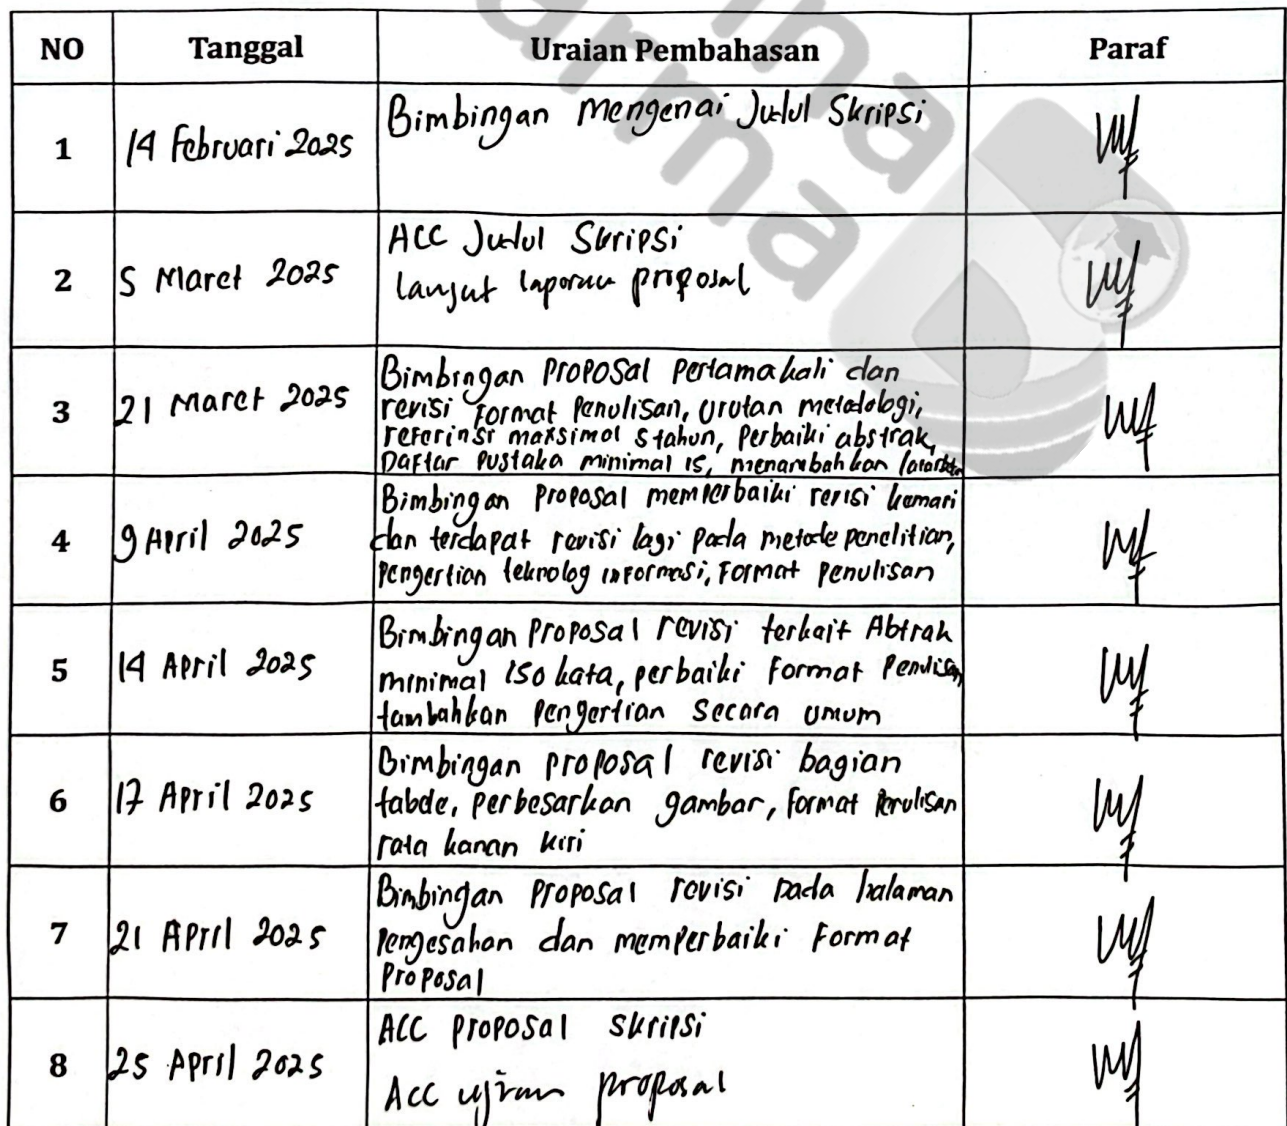 NO Tanggal Uraian Pembahasan Paraf
1 14 Februari 2025 Bimbingan Mengenai Judul Skripsi
2 5 Maret 2025 ACC Judul Skripsi
lanjut laporan proposal
3 21 Maret 2025 Bimbingan Proposal Pertama kali dan
revisi Format Penulisan, Urutan metodologi,
referinsi maksimal 5 tahun, Perbaiki abstrak,
Daftar Pustaka minimal 15, menambahkan
4 9 April 2025 Bimbingan Proposal memperbaiki revisi kemari
dan terdapat revisi lagi pada metode penelitian,
Pengertian teknolog informasi, Format Penulisan
5 14 April 2025 Bimbingan Proposal revisi terkait Abtrak
minimal 150 kata, perbaiki Format Penulisan,
tambahkan Pengertian Secara Umum
6 17 April 2025 Bimbingan proposal revisi bagian
tabde, perbesarkan gambar, Format Penulisan
rata kanan kiri
7 21 April 2025 Bimbingan Proposal revisi pada halaman
Pengesahan dan memperbaiki Format
Proposal
8 25 April 2025 ACC Proposal Skripsi
ACC ujian proposal